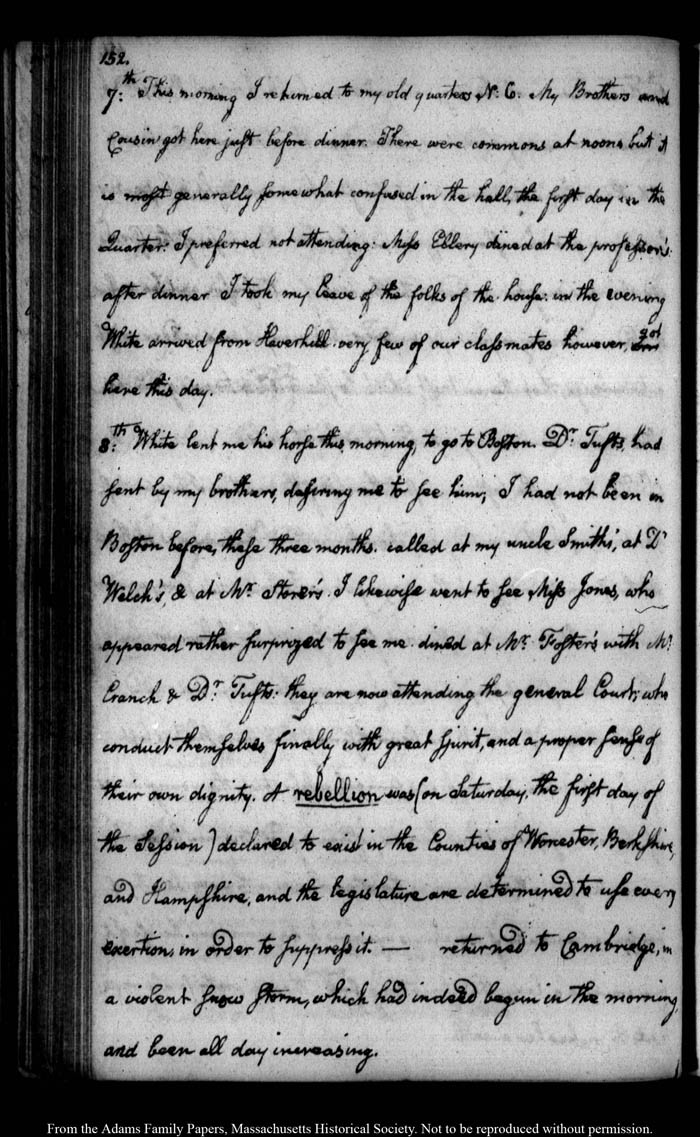 152.
7.th This morning I returned to my old quarters N: 6. My Brothers and
Cousin got here just before dinner. There were commons at noon, but it
is most generally somewhat confused in the hall, the first day in the
Quarter: I preferred not attending: Miss Ellery dined at the professor's:
after dinner I took my leave of the folks of the house: in the evening
White arrived from Haverhill. very few of our classmates however, got
here this day.
8.th White lent me his horse this morning, to go to Boston. Dr. Tufts, had
sent by my brothers, desiring me to see him; I had not been in
Boston before, these three months. called at my uncle Smith's, at Dr
Welch's, & at Mr. Storer's. I likewise went to see Miss Jones, who
appeared rather surprized to see me. dined at Mr. Foster's with Mr.
Cranch & Dr. Tufts: they are now attending the general Court; who
conduct themselves finally with great spirit, and a proper sense of
their own dignity. A rebellion was (on Saturday, the first day of
the Session) declared to exist in the Counties of Worcester, Berkshire,
and Hampshire, and the legislature are determined to use every
exertion, in order to suppress it. — returned to Cambridge, in
a violent snow storm, which had indeed begun in the morning,
and been all day increasing.
From the Adams Family Papers, Massachusetts Historical Society. Not to be reproduced without permission.